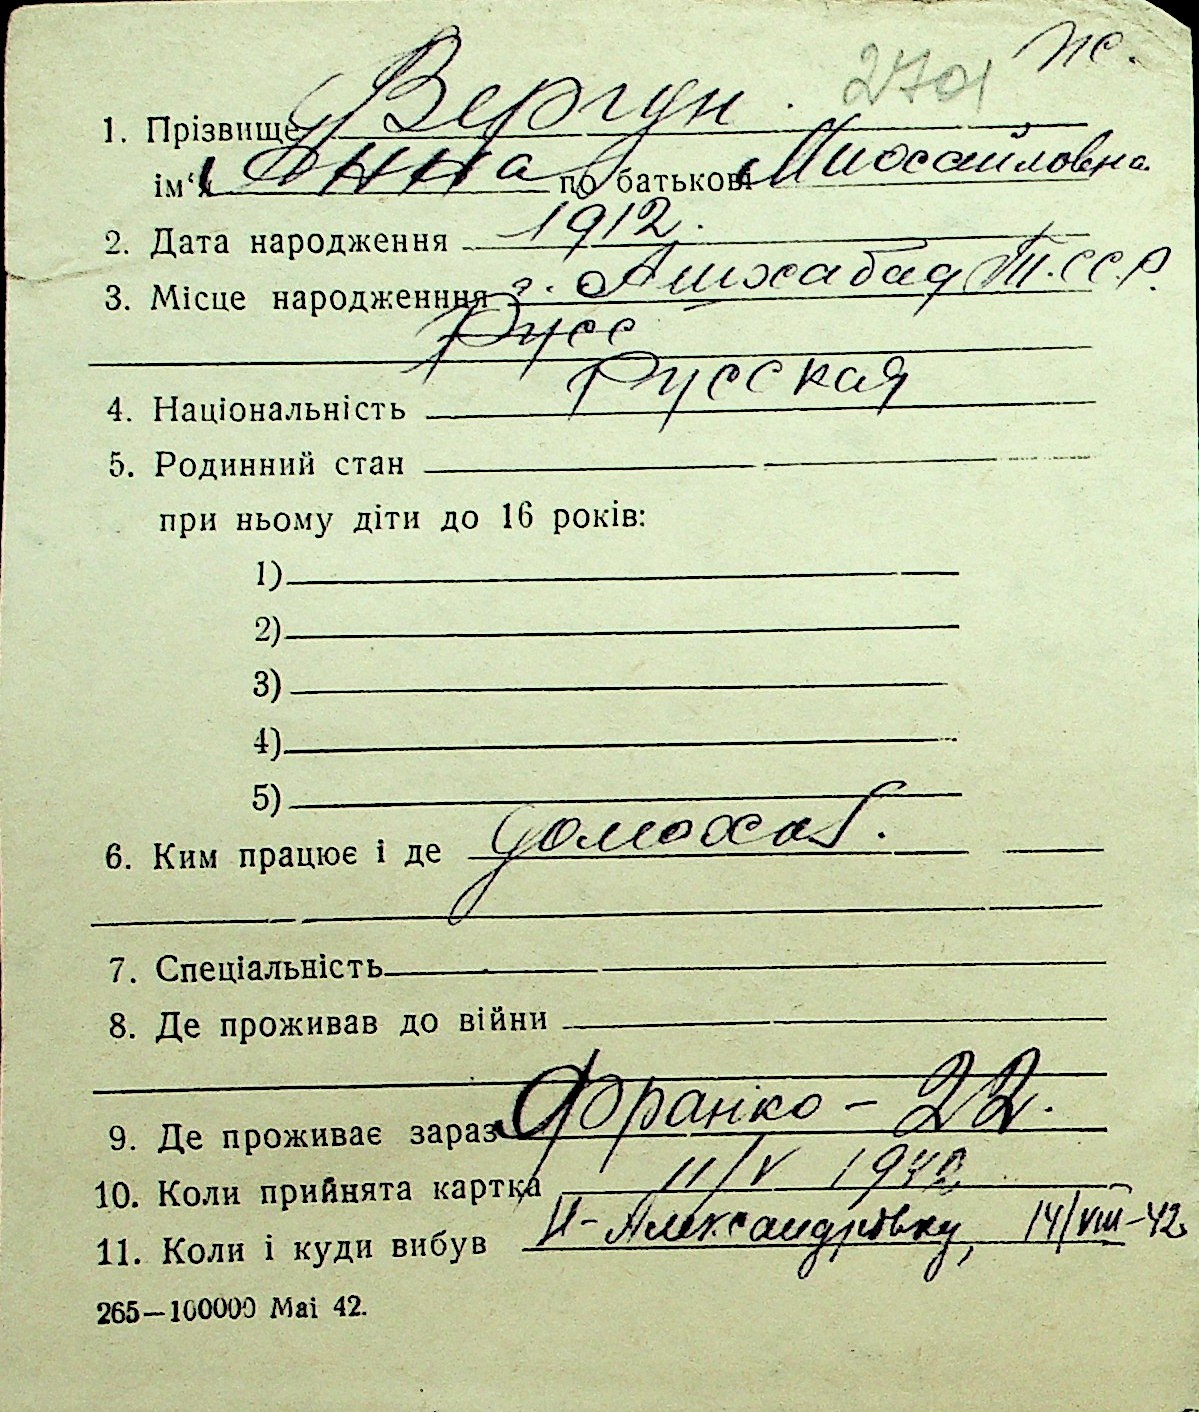 2701 ж.
1. Прізвище Вергун.
ім'я Анна по батькові Михайловна
2. Дата народження 1912.
3. Місце народженння г. Ашхабад Т.СС.Р.
Русс
Русская
4. Національність
5. Родинний стан
при ньому діти до 16 років:
1)
2)
3)
4)
5)
6. Ким працює і де домохоз.
7. Спеціальність
8. Де проживав до війни
9. Де проживає зараз Франко - 22.
10. Коли прийнята картка 11/V 1942
11. Коли і куди вибув Н-Александровку, 14/VIII-42
265—100000 Маі 42.